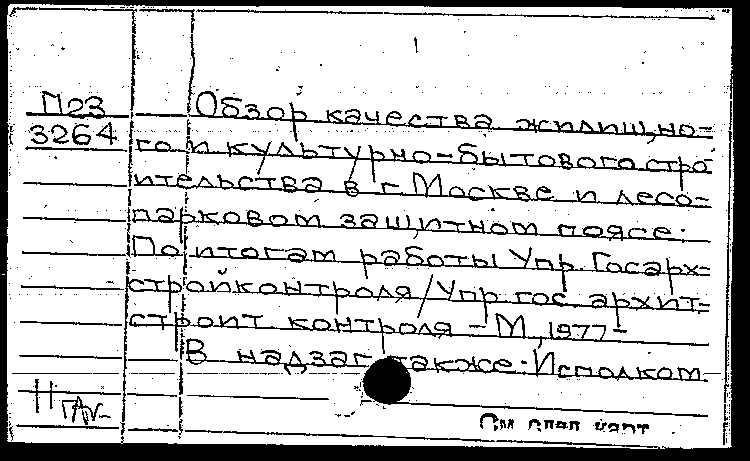 П23
3264
Обзор качества жилищно-
го и культурно-бытового строи
ительства в г. Москве и лесо-
парковом защитном поясе.
По итогам работы Упр. Госарх-
стройконтроля/Упр. гос. архит-
строит контроля - М, 1977-
В надзаг также: Исполком
См след карт